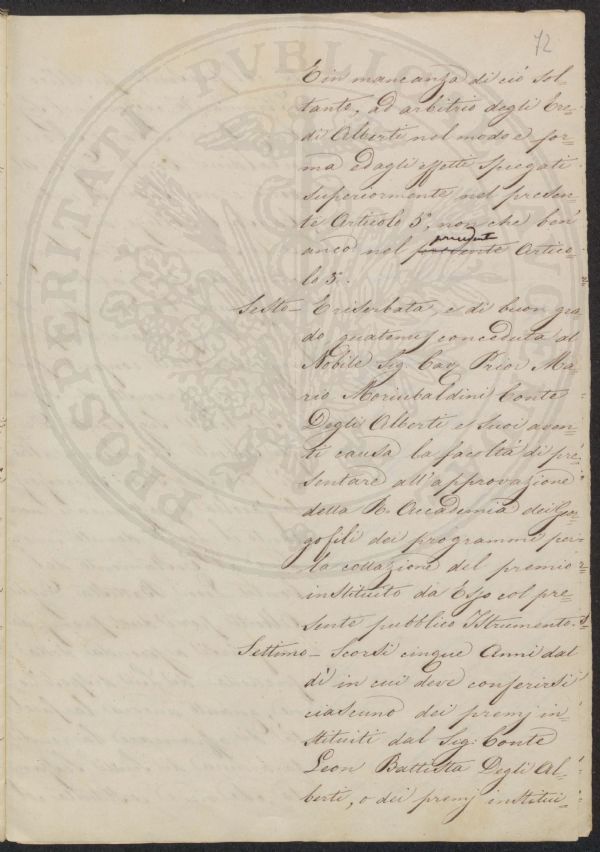 72
E in mancanza di ciò Sol=
tanto, ad arbitrio degli Ere=
di Alberti nel modo e for=
ma edagli effetti Spiegati
Superiormente nel presen=
te Articolo 5°, non che ben
anco nel presente precedente Artico=
lo 5.
Sesto = E riserbata, e di buon gra=
do quatenus conceduta al
Nobile Sig. Cav. Prior Ma=
rio Moriubaldini Conte
Degli Alberti e Suoi aven=
ti causa la facoltà di pre=
sentare all'approvazione
della R. Accademia dei Geor=
gofili dei programmi per
la collazione del premio
instituito da Esso col pre=
sente pubblico Istrumento.
Settimo = Scorsi cinque Anni dal
dì in cui deve conferirsi
ciascuno dei premj in=
stituiti dal Sig. Conte
Leon Battista Degli Al=
berti, o dei premj institui=
PROSPERITATI PUBLICAE